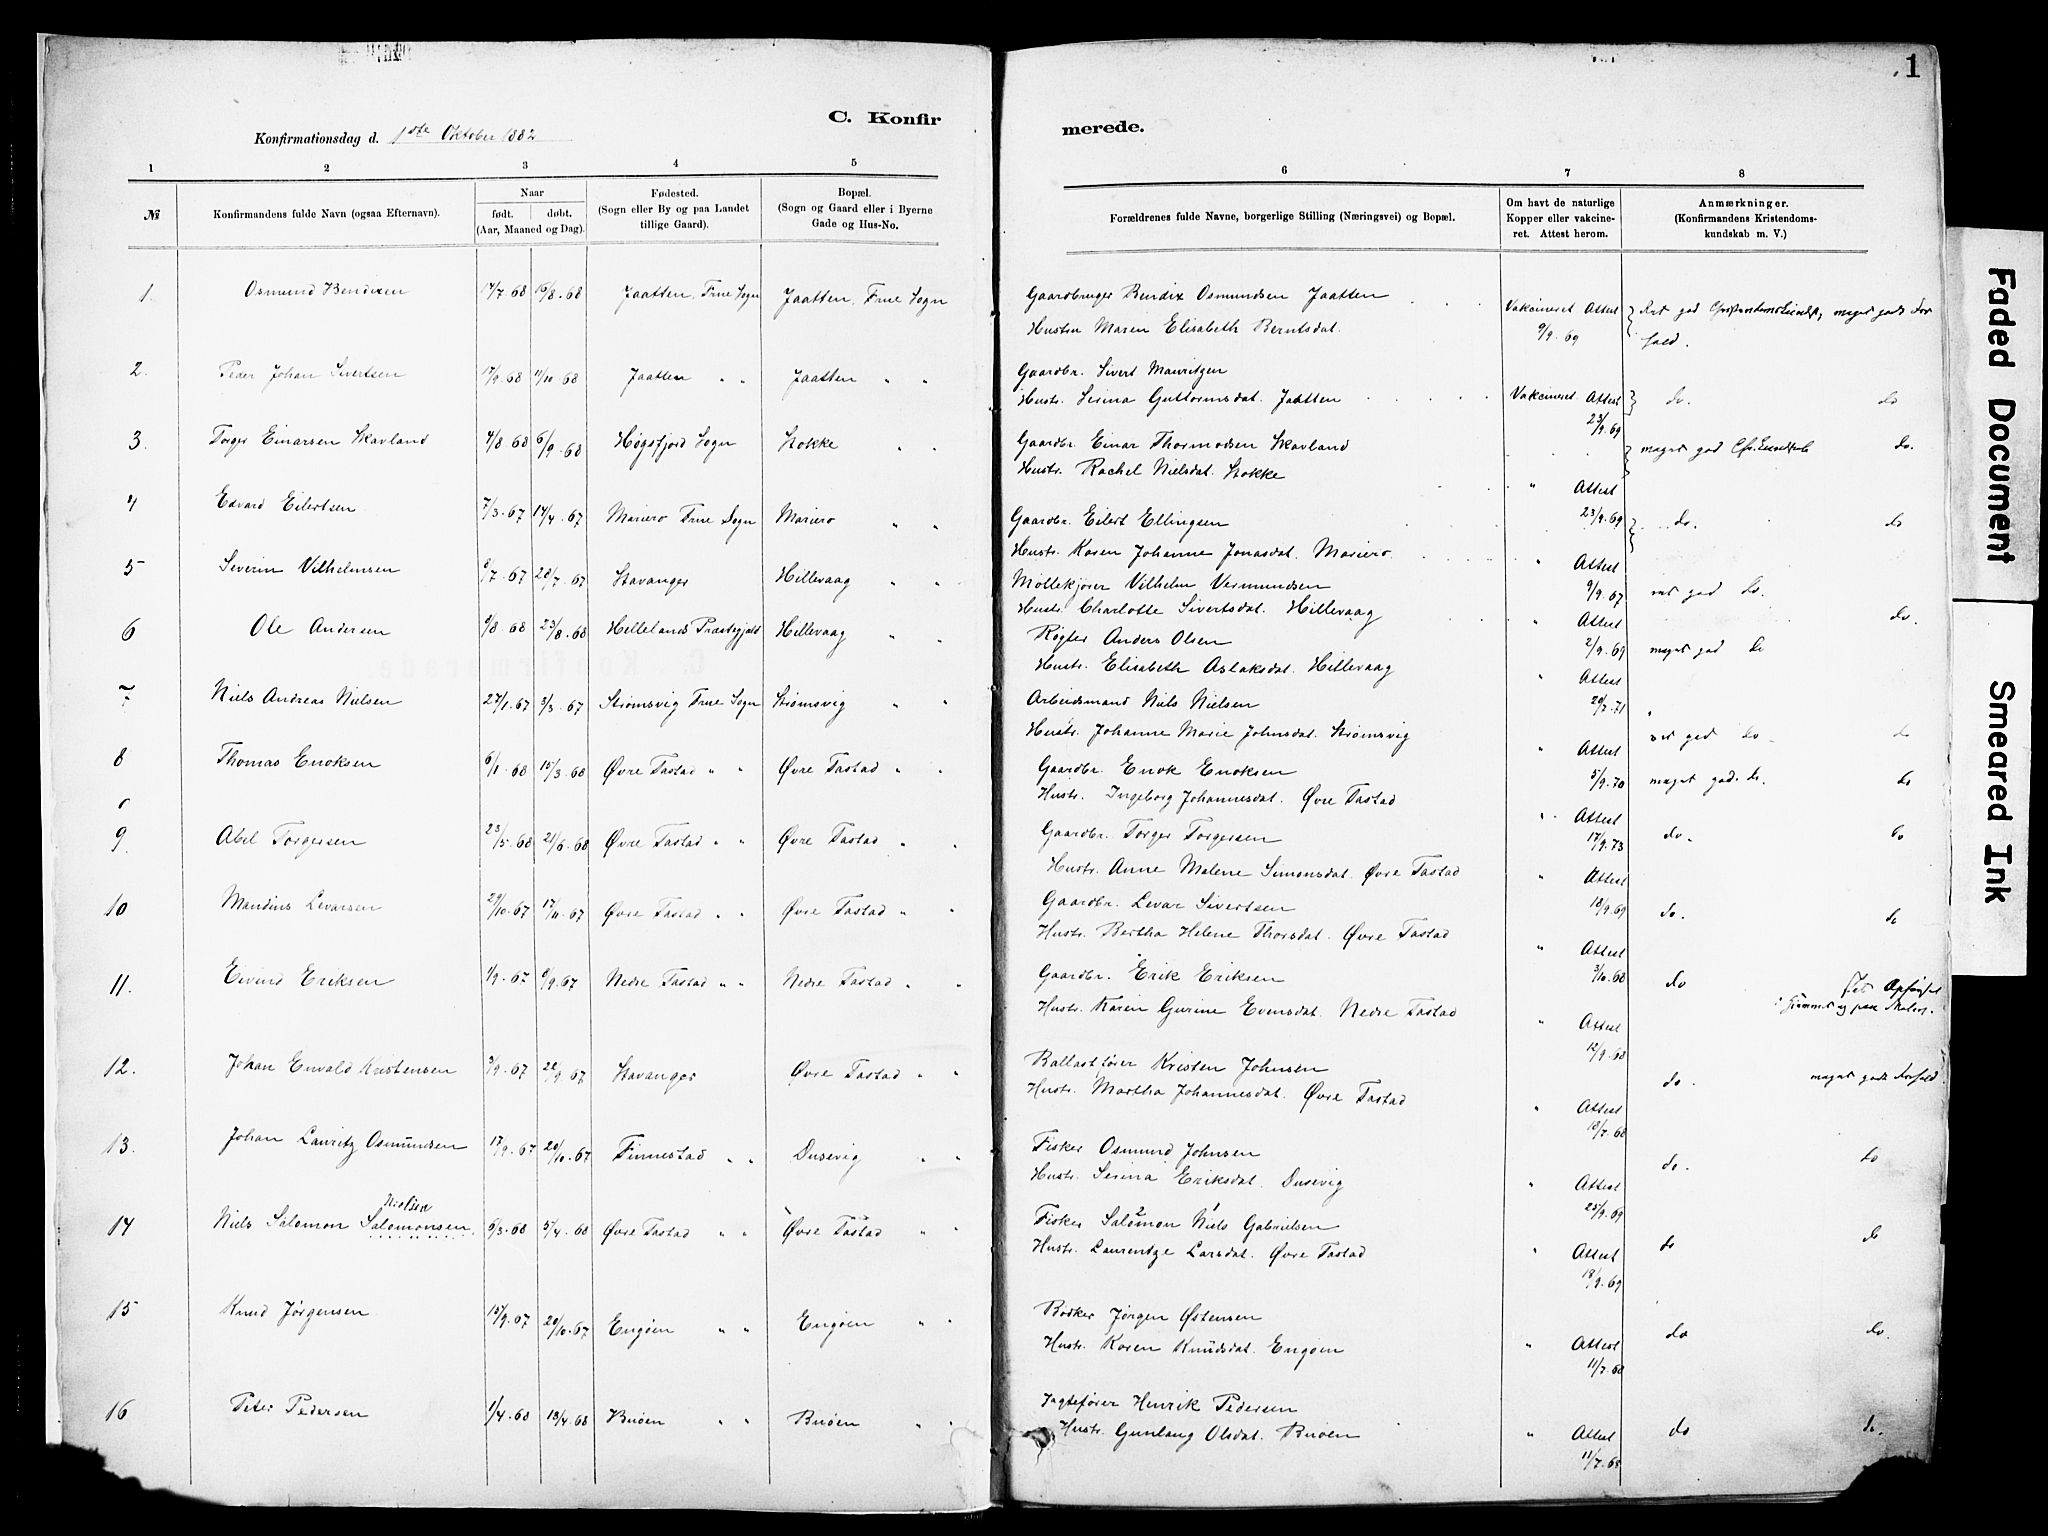 1
C. Konfirmerede.
Konfirmationsdag d. 1ste Oktober 1882
1 2 3 4 5 6 7 8
№
Konfirmandens fulde Navn (ogsaa Efternavn).
Naar
født. døbt.
(Aar, Maaned og Dag).
Fødested.
(Sogn eller By og paa Landet
tillige Gaard).
Bopæl.
(Sogn og Gaard eller i Byerne
Gade og Hus-No.
Forældrenes fulde Navne, borgerlige Stilling (Næringsvei) og Bopæl.
Om havt de naturlige
Kopper eller vakcine-
ret. Attest herom.
Anmærkninger.
(Konfirmandens Kristendoms-
kundskab m. V.)
1. Osmund Bendixen 17/7 68 16/8 68 Jaatten, Frue Sogn Jaatten, Frue Sogn Gaardbruger Bendix Osmundsen Jaatten Vakcineret Attest
Hustru Maren Elisabeth Berntsdat. 9/9. 69
2. Peder Johan Sivertsen 17/9 68 11/10 68 Jaatten " " Jaatten " " Gaardbr. Sivert Mauritzen
Hustr. Serina Guttormsdat. Jaatten Vakcineret Attest do. do
23/9. 69
3. Torger Einarsen Skavland 4/8 68 6/9. 68 Høgsfjord Sogn Stokke " " Gaardbr. Einar Thormodsen Skavland meget god do.
Hustr. Rachel Nielsdat. Stokke " Attest
4 Edvard Eilertsen 7/3. 67 14/4. 67 Mariero Frue Sogn Mariero " " Gaardbr. Eilert Ellingsen 23/9. 69 do. do
Hustr. Karen Johanne Jonasdat. Mariero. " Attest
5 Severin Vilhelmsen 8/7. 67 28/7. 67 Stavanger Hillevaag " " Møllekjører Vilhelm Vermundsen 9/9. 67 god do.
Hustr. Charlotte Sivertsdat. Hillevaag " Attest do.
6 Ole Andersen 9/8 68 23/8. 68 Hellelands Præstegjeld Hillevaag " " Røgter Anders Olsen 2/9. 69 meget god do
Hustr. Elisabeth Aslaksdat. Hillevaag " Attest
7 Niels Andreas Nielsen 27/1. 67 3/3. 67 Strømsvig Frue Sogn Strømsvig " " Arbeidsmand Niels Nielsen
Hustr. Johanne Marie Johnsdat. Strømsvig " Attest god do. do
8 Thomas Enoksen 6/1. 68 15/3. 68 Øvre Tastad " " Øvre Tastad " " Gaardbr. Enok Enoksen 5/9. 70 meget god. do. do
Hustr. Ingeborg Johannesdat. Øvre Tastad " Attest
9. Abel Torgersen 23/5. 68 21/6. 68 Øvre Tastad " " Øvre Tastad " " Gaardbr. Torger Torgersen 17/9. 73 do. do
Hustr. Anne Malene Simonsdat. Øvre Tastad " Attest
10 Mandius Levarsen 29/10. 67 17/11. 67 Øvre Tastad " " Øvre Tastad " " Gaardbr. Levar Sivertsen 18/9. 69 do. do
Hustr. Bertha Helene Thorsdat. Øvre Tastad " Attest
11. Eivind Eriksen 1/9. 67 9/9. 67 Nedre Tastad " " Nedre Tastad " " Gaardbr. Erik Eriksen 3/10. 68 do
Hustr. Karen Gurine Evensdat. Nedre Tastad " Attest
12/9. 68
12. Johan Envald Kristensen 3/9. 67 22/9. 67 Stavanger Øvre Tastad " " Ballastfører Kristen Johnsen
Hustr. Martha Johannesdat. Øvre Tastad " Attest do. meget godt Forhold
18/7. 68
13. Johan Lauritz Osmundsen 17/9. 67 20/10. 67 Finnestad " " Dusevig " " Fisker Osmund Johnsen do. do
Hustr. Serina Eriksdat. Dusevig " Attest
25/9. 69
14 Niels Salomon Salomonsen Nielsen 6/3. 68 5/4. 68 Øvre Tastad " " Øvre Tastad " " Fisker Salomon 2 Niels 1 Gabrielsen do do
Hustr. Laurentze Larsdat. Øvre Tastad " Attest
18/9. 69
15 Knud Jørgensen 15/9. 67 20/10. 67 Engøen " " Engøen " " Bødker Jørgen Østensen do do.
Hustr. Karen Knudsdat. Engøen " Attest
11/7. 68
16 Peter Pedersen 1/4. 68 13/4. 68 Buøen " " Buøen " " Jagtefører Henrik Pedersen
Hustr. Gunlaug Olsdat. Buøen " Attest do do.
11/7. 68
Faded Document
Smeared Ink